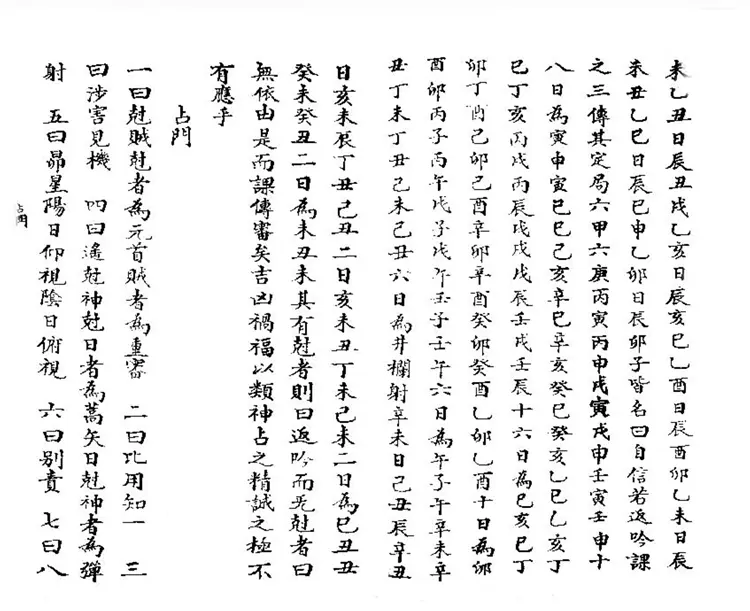 未乙丑日辰丑戌乙亥日辰亥巳乙酉日辰酉卯乙未日辰
未丑乙巳日辰巳申乙卯日辰卯子皆名曰自信若返吟課
之三傳其定局六甲六庚丙寅丙申戊寅戊申壬寅壬申十
八日為寅申寅巳巳己亥辛巳辛亥癸巳癸亥乙巳乙亥丁
巳丁亥丙戌丙辰戊戌戊辰壬戌壬辰十六日為巳亥巳丁
卯丁酉己卯己酉辛卯辛酉癸卯癸酉乙卯乙酉十日為卯
酉卯丙子丙午戊子戊午壬子壬午六日為午子午辛未辛
丑丁未丁丑己未己丑六日為井欄射辛未日己丑辰辛丑
日亥未辰丁丑己丑二日亥未丑丁未己未二日為巳丑丑
癸未癸丑二日為未丑未其有尅者則曰返吟而无尅者曰
無依由是而課傳審矣吉凶禍福以類神占之精誠之極不
有應乎
占門
一曰尅賊尅者為元首賊者為重審 二曰比用知一 三
曰涉害見機 四曰遙尅神尅日者為蒿矢日尅神者為彈
射 五曰昴星陽日仰視陰日俯視 六曰别責 七曰八
占門